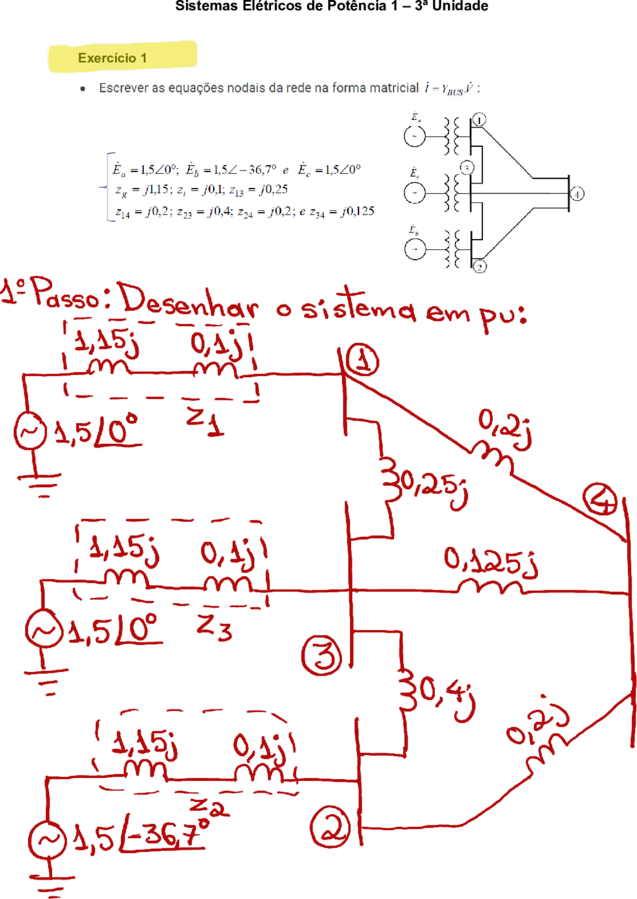 Sistemas Elétricos de Potência 1 – 3ª Unidade
Exercicio 1
• Escrever as equações nodais da rede na forma matricial İ = Y_BUS.V̇ :
Ė_a = 1,5∠0°; Ė_b = 1,5∠−36,7° e Ė_c = 1,5∠0°
z_g = j1,15; z_t = j0,1; z_13 = j0,25
z_14 = j0,2; z_23 = j0,4; z_24 = j0,2; e z_34 = j0,125
Ė_a
1
Ė_c
3
4
Ė_b
2
1º Passo: Desenhar o sistema em pu:
1,15j 0,1j
1
Z1
1,5∠0°
0,2j
0,25j
4
1,15j 0,1j
0,125j
1,5∠0°
Z3
3
0,4j
0,2j
1,15j 0,1j
Z2
1,5∠-36,7°
2